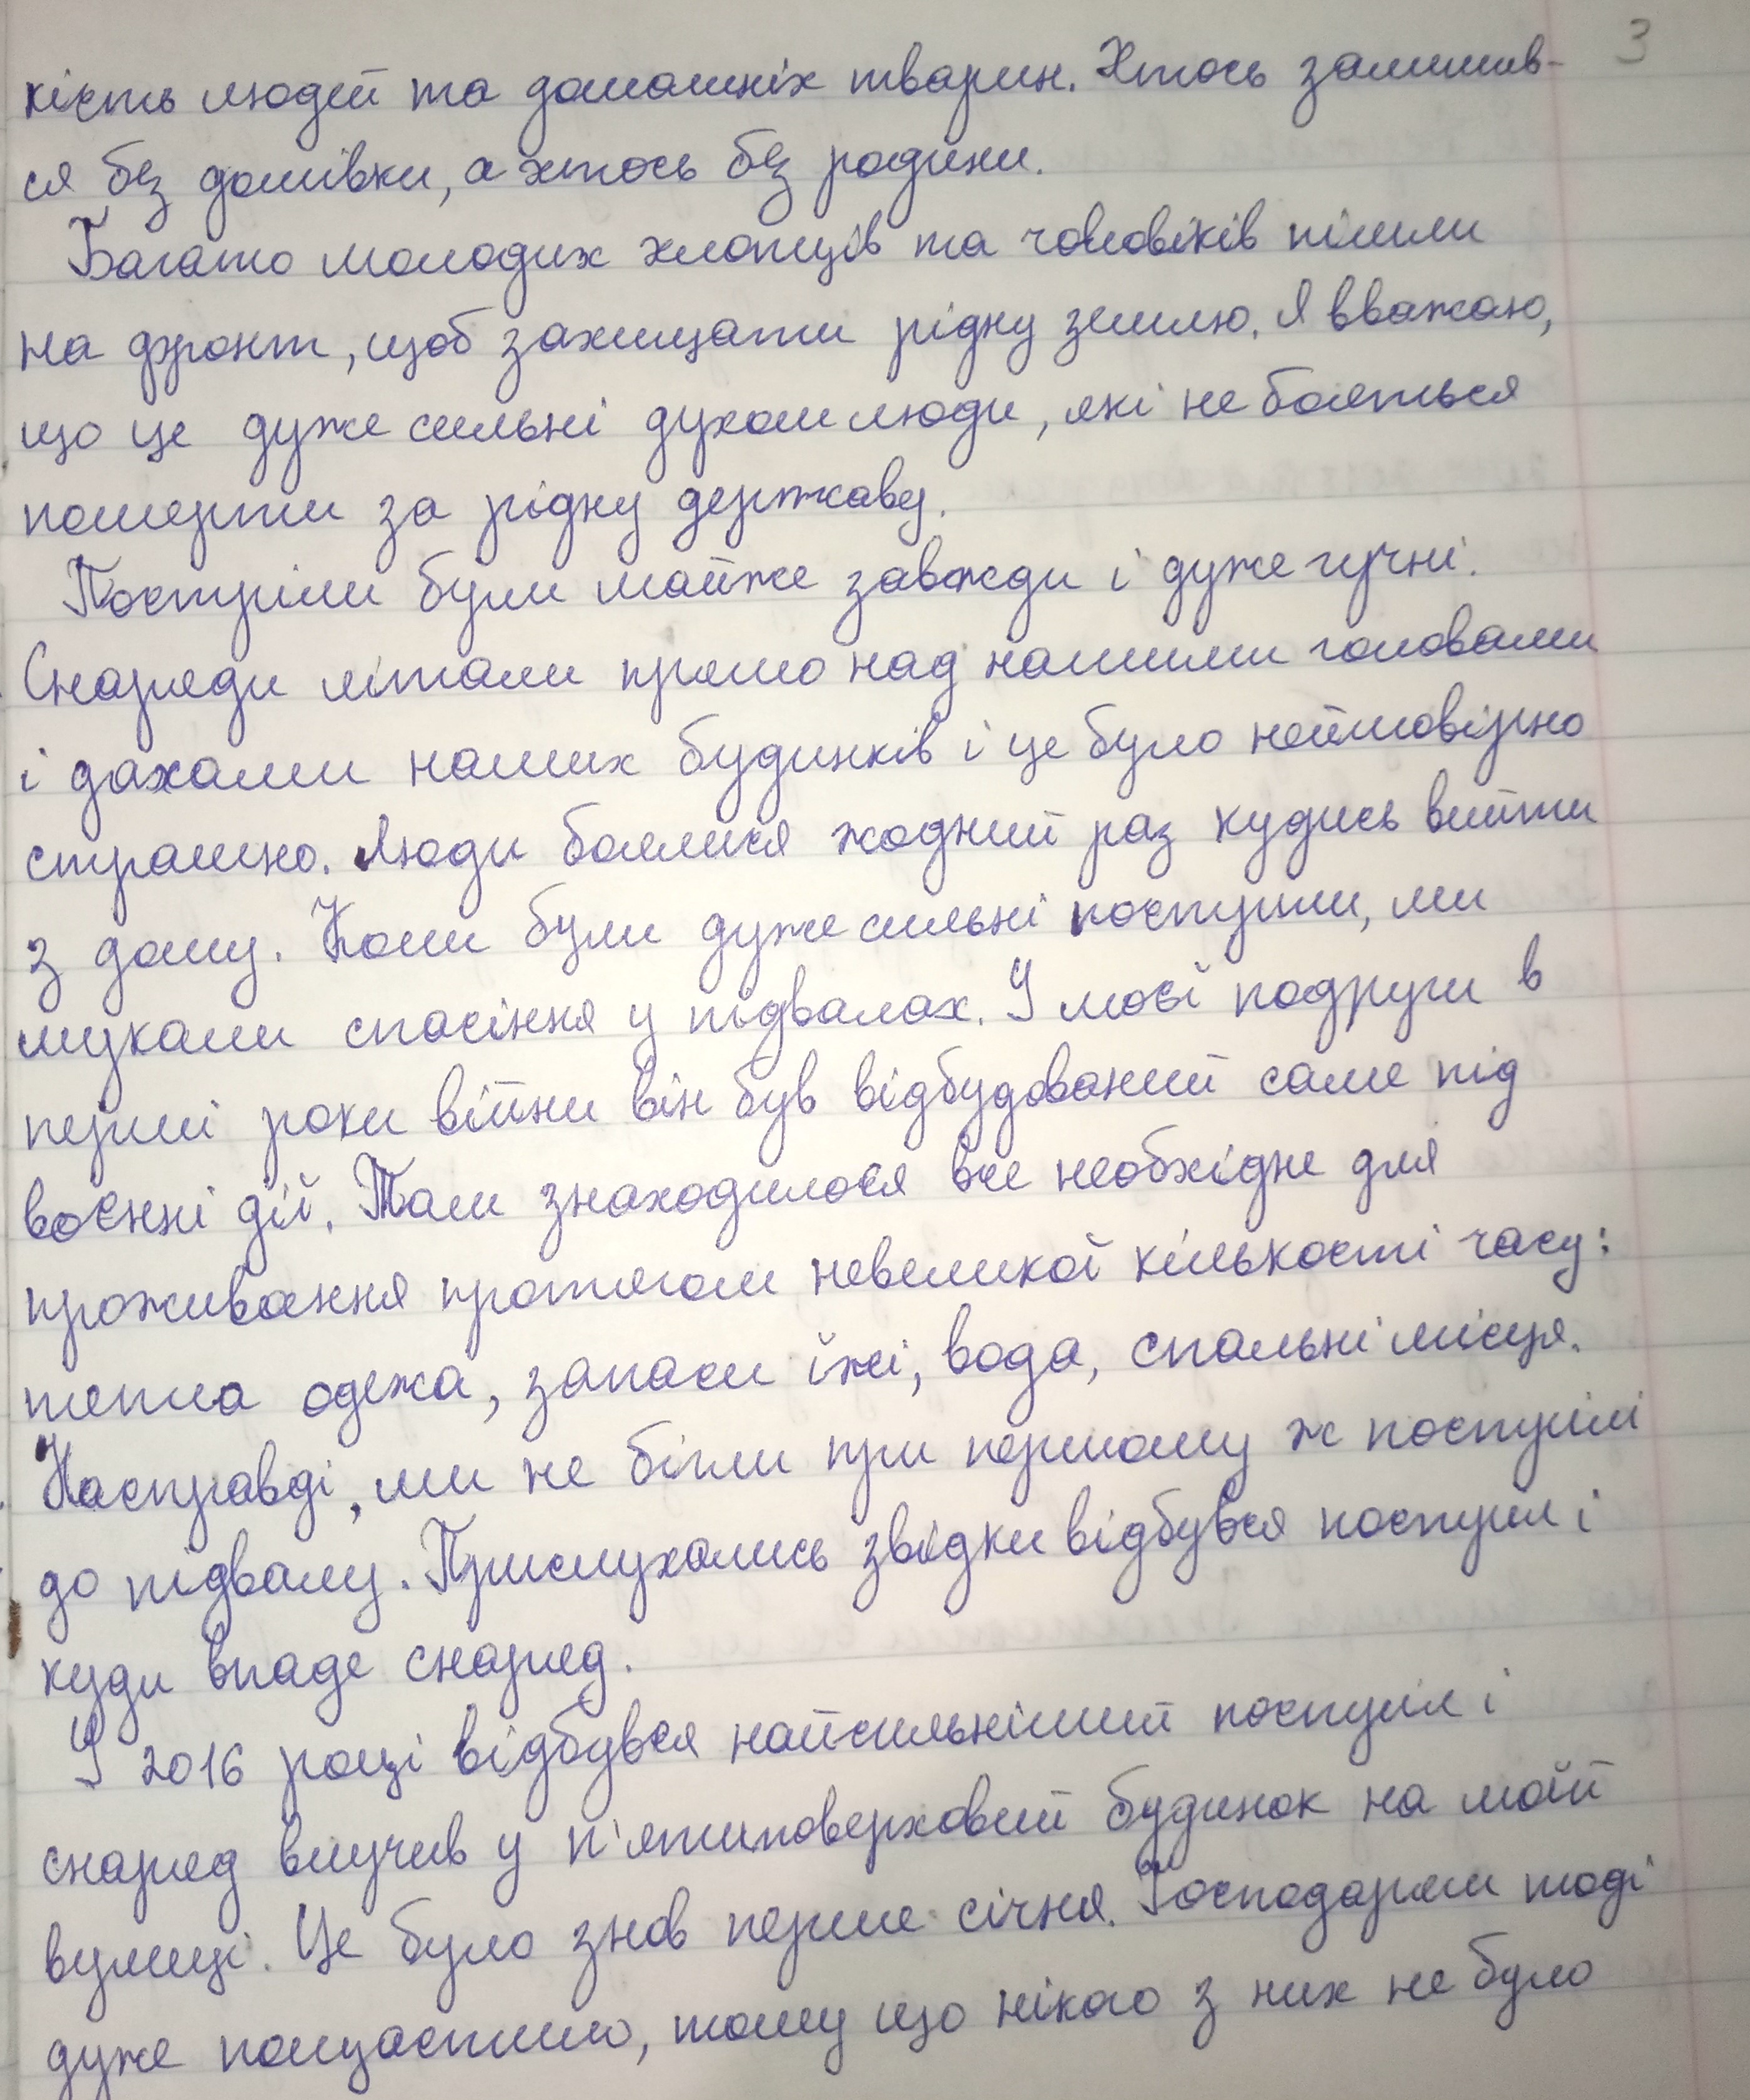 3
кість людей та домашніх тварин. Хтось залишив-
ся без домівки, а хтось без родини.
Багато молодих хлопців та чоловіків пішли
на фронт, щоб захищати рідну землю. Я вважаю,
що це дуже сильні духом люди, які не бояться
померти за рідну державу.
Постріли були майже завжди і дуже гучні.
Снаряди літали прямо над нашими головами
і дахами наших будинків і це було неймовірно
страшно. Люди боялися жодний раз кудись вийти
з дому. Коли були дуже сильні постріли, ми
шукали спасіння у підвалах. У моєї подруги в
перші роки війни він був відбудований саме під
воєнні дії. Там знаходилося все необхідне для
проживання протягом невеликої кількості часу:
тепла одежа, запаси їжі, вода, спальні місця.
Насправді, ми не бігли при першому ж пострілі
до підвалу. Прислухались звідки відбувся постріл і
куди впаде снаряд.
У 2016 році відбувся найсильніший постріл і
снаряд влучив у п'ятиповерховий будинок на моїй
вулиці. Це було знов перше січня. Господарям тоді
дуже пощастило, тому що нікого з них не було